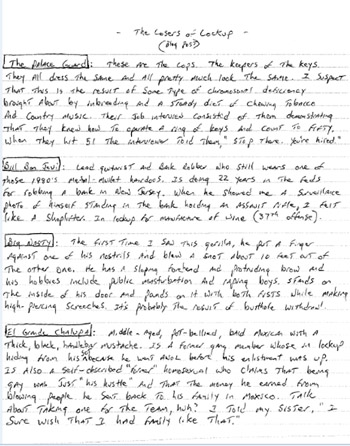 - The Losers of Lockup -
(Blog Post)
The Palace Guard: These are the cops. The keepers of the keys.
They all dress the same and all pretty much look the same. I suspect
that this is the result of some type of chromosomal deficiency
brought about by inbreeding and a steady diet of chewing tobacco
and country music. Their job interview consisted of them demonstrating
that they knew how to operate a ring of keys and count to fifty.
When they hit 51 the interviewer told them, "Stop there. You're hired."
Bill Bon Jovi: Lead guitarist and bank robber who still wears one of
those 1980's metal-mullet hairdos. Is doing 22 years in the feds
for robbing a bank in New Jersey. When he showed me a surveillance
photo of himself standing in the bank holding an assault rifle, I felt
like a shoplifter. In lockup for manufacture of wine (37th offense).
Big Nasty: The first time I saw this gorilla, he put a finger
against one of his nostrils and blew a snot about 10 feet out of
the other one. He has a sloping forehead and protruding brow and
his hobbies include public masturbation and raping boys. Stands on
the inside of his door and pounds on it with both fists while making
high-piercing screeches. It's probably the result of butthole withdrawl.
El Grande Chalupa: Middle-aged, pot-bellied, bald Mexican with a
thick, black, handlebar mustache. Is a former gang member whose in lockup
hiding from his because he went AWOL before his enlistment was up.
Is also a self-described "former" homosexual who claims that being
gay was just "his hustle" and that the money he earned from
blowing people he sent back to his family in Mexico. Talk
about taking one for the team, huh? I told my sister, "I
sure wish that I had family like that."